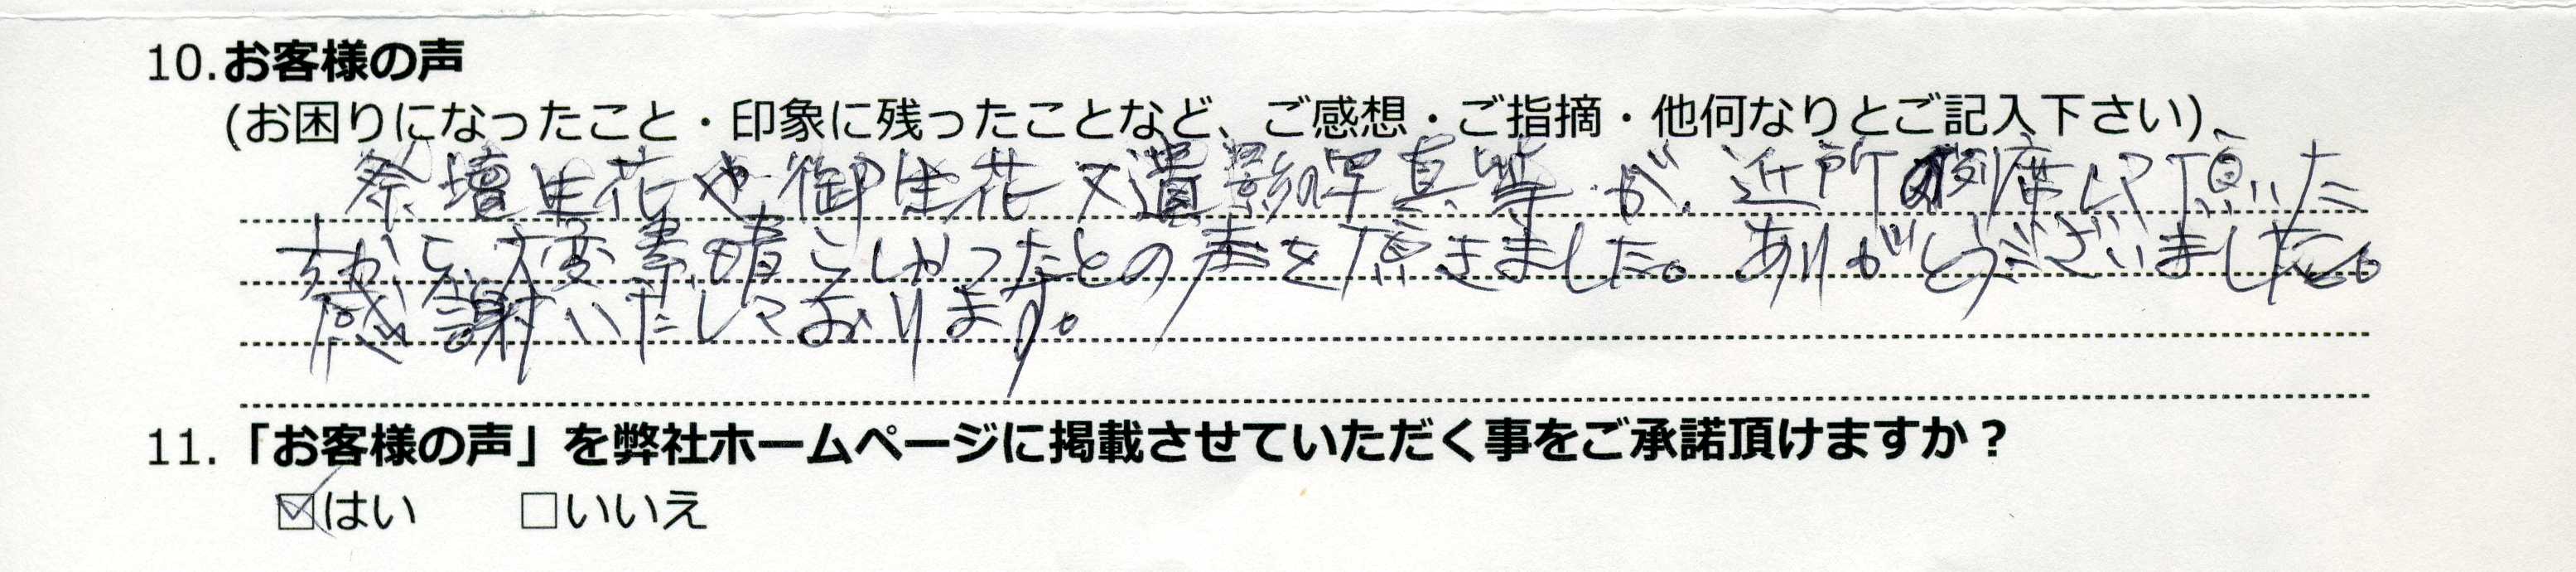 10.お客様の声
(お困りになったこと・印象に残ったことなど、ご感想・ご指摘・他何なりとご記入下さい)
祭壇生花や御生花又遺影写真等が、近所の列席して頂いた
方から、大変素晴らしかったとの声を頂きました。ありがとうございました。
感謝いたしております。
11.「お客様の声」を弊社ホームページに掲載させていただく事をご承諾頂けますか？
☑はい □いいえ